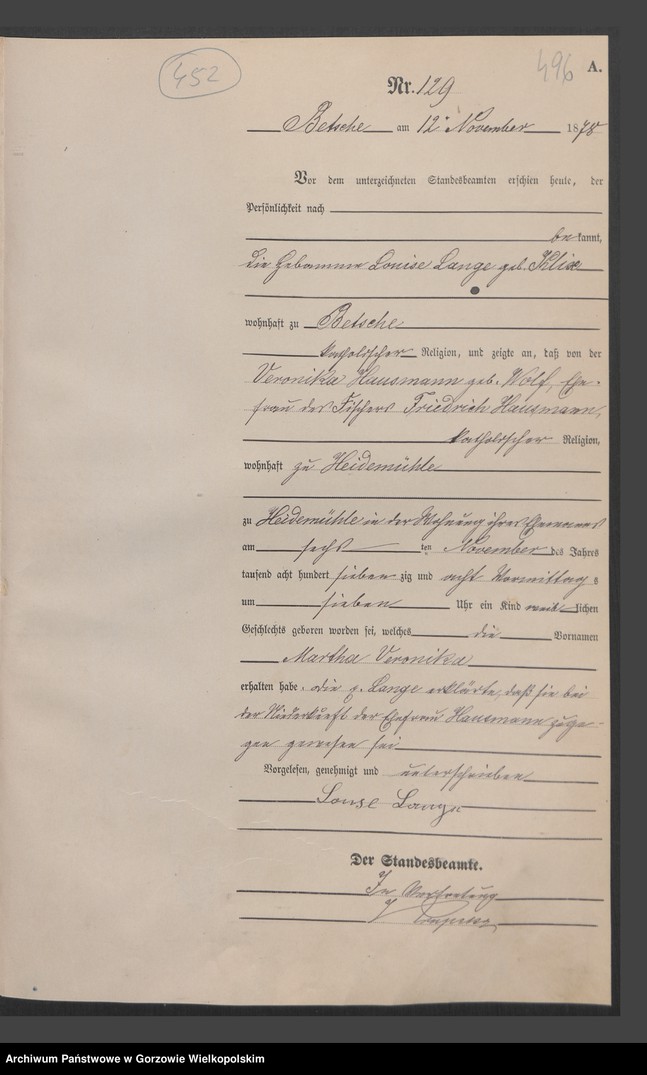 452
496 A.
Nr. 129
Betsche am 12ten November 1878
Vor dem unterzeichneten Standesbeamten erschien heute, der
Persönlichkeit nach
bekannt,
die Hebamme Louise Lange geb. Klix
wohnhaft zu Betsche
katholischer Religion, und zeigte an, daß von der
Veronika Hausmann geb. Wolf, Ehe-
frau des Fischers Friedrich Hausmann,
katholischer Religion,
wohnhaft zu Heidemühle
zu Heidemühle in der Wohnung ihres Ehemannes
am sechsten November des Jahres
tausend acht hundert siebenzig und acht Vormittags
um sieben Uhr ein Kind weiblichen
Geschlechts geboren worden sei, welches die Vornamen
Martha Veronika
erhalten habe. Die p. Lange erklärte, daß sie bei
der Niederkunft der Ehefrau Hausmann zuge-
gen gewesen sei
Vorgelesen, genehmigt und unterschrieben
Louise Lange
Der Standesbeamte.
In Vertretung
Archiwum Państwowe w Gorzowie Wielkopolskim